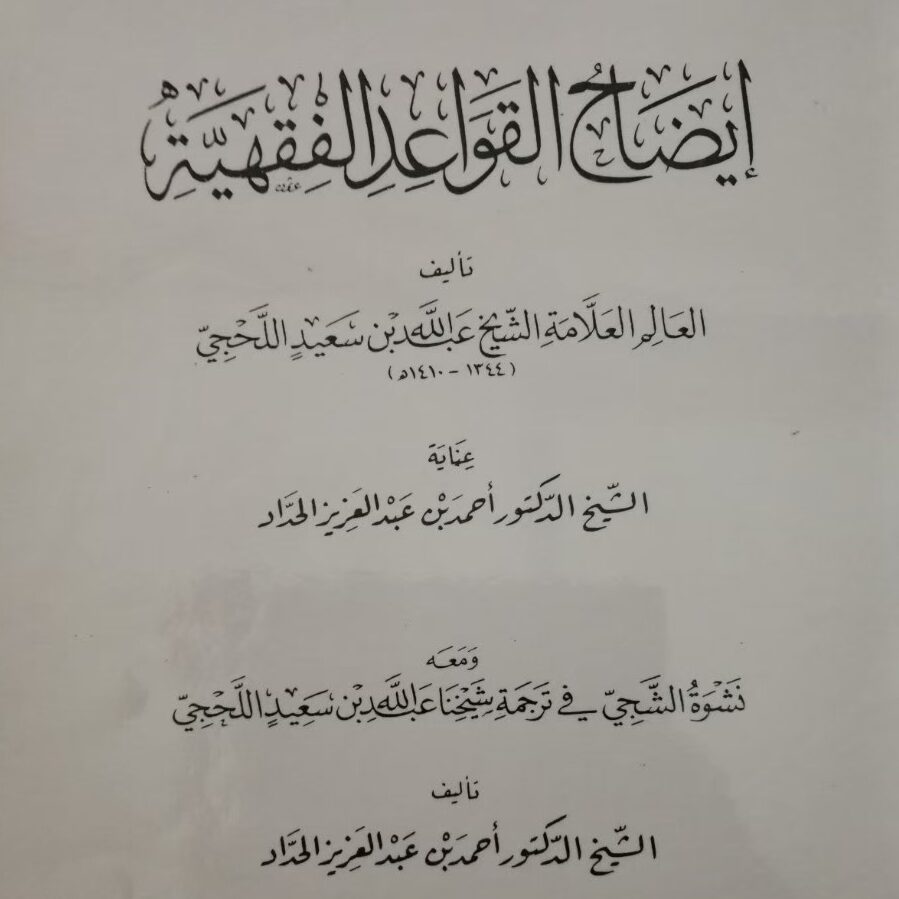 إيضاح القواعد الفقهية
تأليف
العالم العلامة الشيخ عبد الله بن سعيد اللحجي
(١٣٤٤ - ١٤١٠ه)
عناية
الشيخ الدكتور أحمد بن عبد العزيز الحداد
ومعه
نشوة الشجي في ترجمة شيخنا عبد الله بن سعيد اللحجي
تأليف
الشيخ الدكتور أحمد بن عبد العزيز الحداد